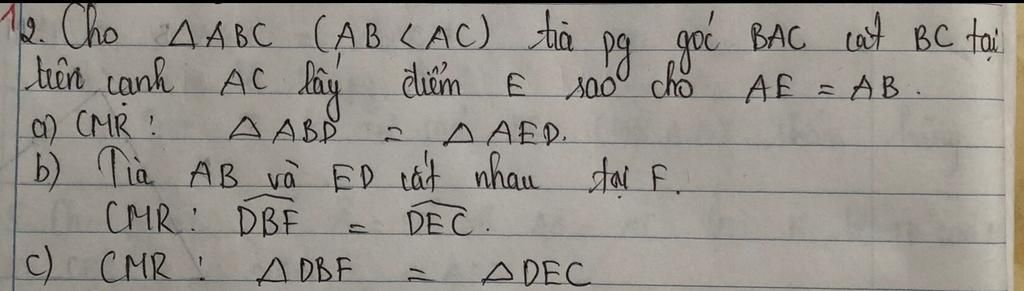 12. Cho △ABC (AB < AC) tia pg góc BAC cắt BC tại
trên cạnh AC lấy điểm E sao cho AE = AB.
a) CMR : △ABD = △AED.
b) Tia AB và ED cắt nhau tại F.
CMR : \widehat{DBF} = \widehat{DEC}.
c) CMR : △DBF = △DEC